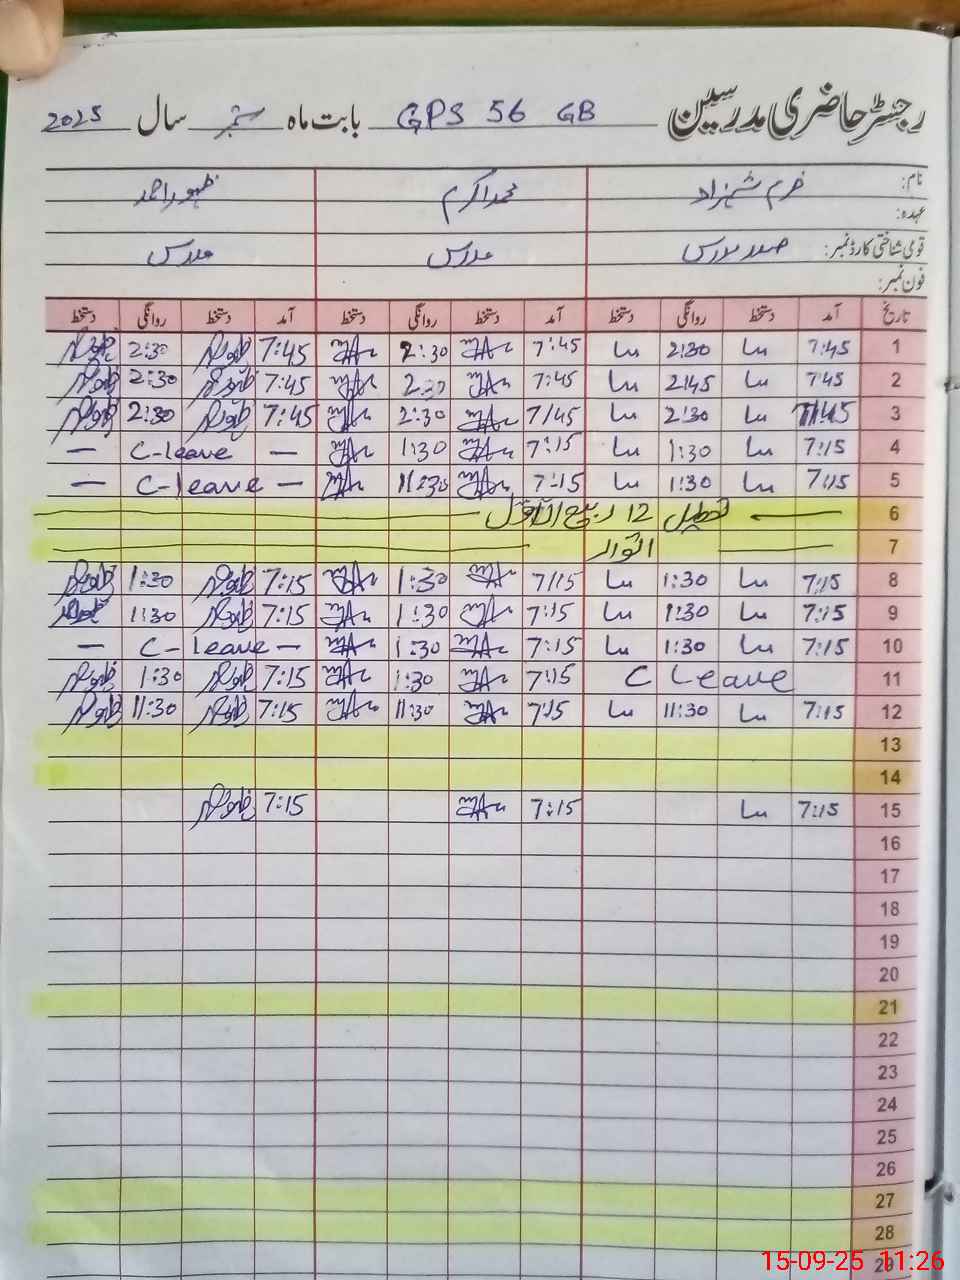 رجسٹر حاضری مدرسین GPS 56 GB بابت ماہ ستمبر سال 2025
نام: خرم شہزاد محمد اکرم ظہور احمد
عہدہ:
قومی شناختی کارڈ نمبر: صدر مدرس مدرس مدرس
فون نمبر:
تاریخ آمد دستخط روانگی دستخط آمد دستخط روانگی دستخط آمد دستخط روانگی دستخط
1 7:45 2:30 7:45 2:30 7:45 2:30
2 7:45 2:45 7:45 2:30 7:45 2:30
3 7:45 2:30 7/45 2:30 7:45 2:30
4 7:15 1:30 7:15 1:30 — C-leave —
5 7:15 1:30 7:15 11:30 — C-leave —
6 تعطیل 12 ربیع الاول
7 اتوار
8 7:15 1:30 7/15 1:30 7:15 1:30
9 7:15 1:30 7:15 1:30 7:15 1:30
10 7:15 1:30 7:15 1:30 — C-leave —
11 C Leave 7:15 1:30 7:15 1:30
12 7:15 11:30 7:15 11:30 7:15 11:30
13
14
15 7:15 7:15 7:15
16
17
18
19
20
21
22
23
24
25
26
27
28
29
15-09-25 11:26